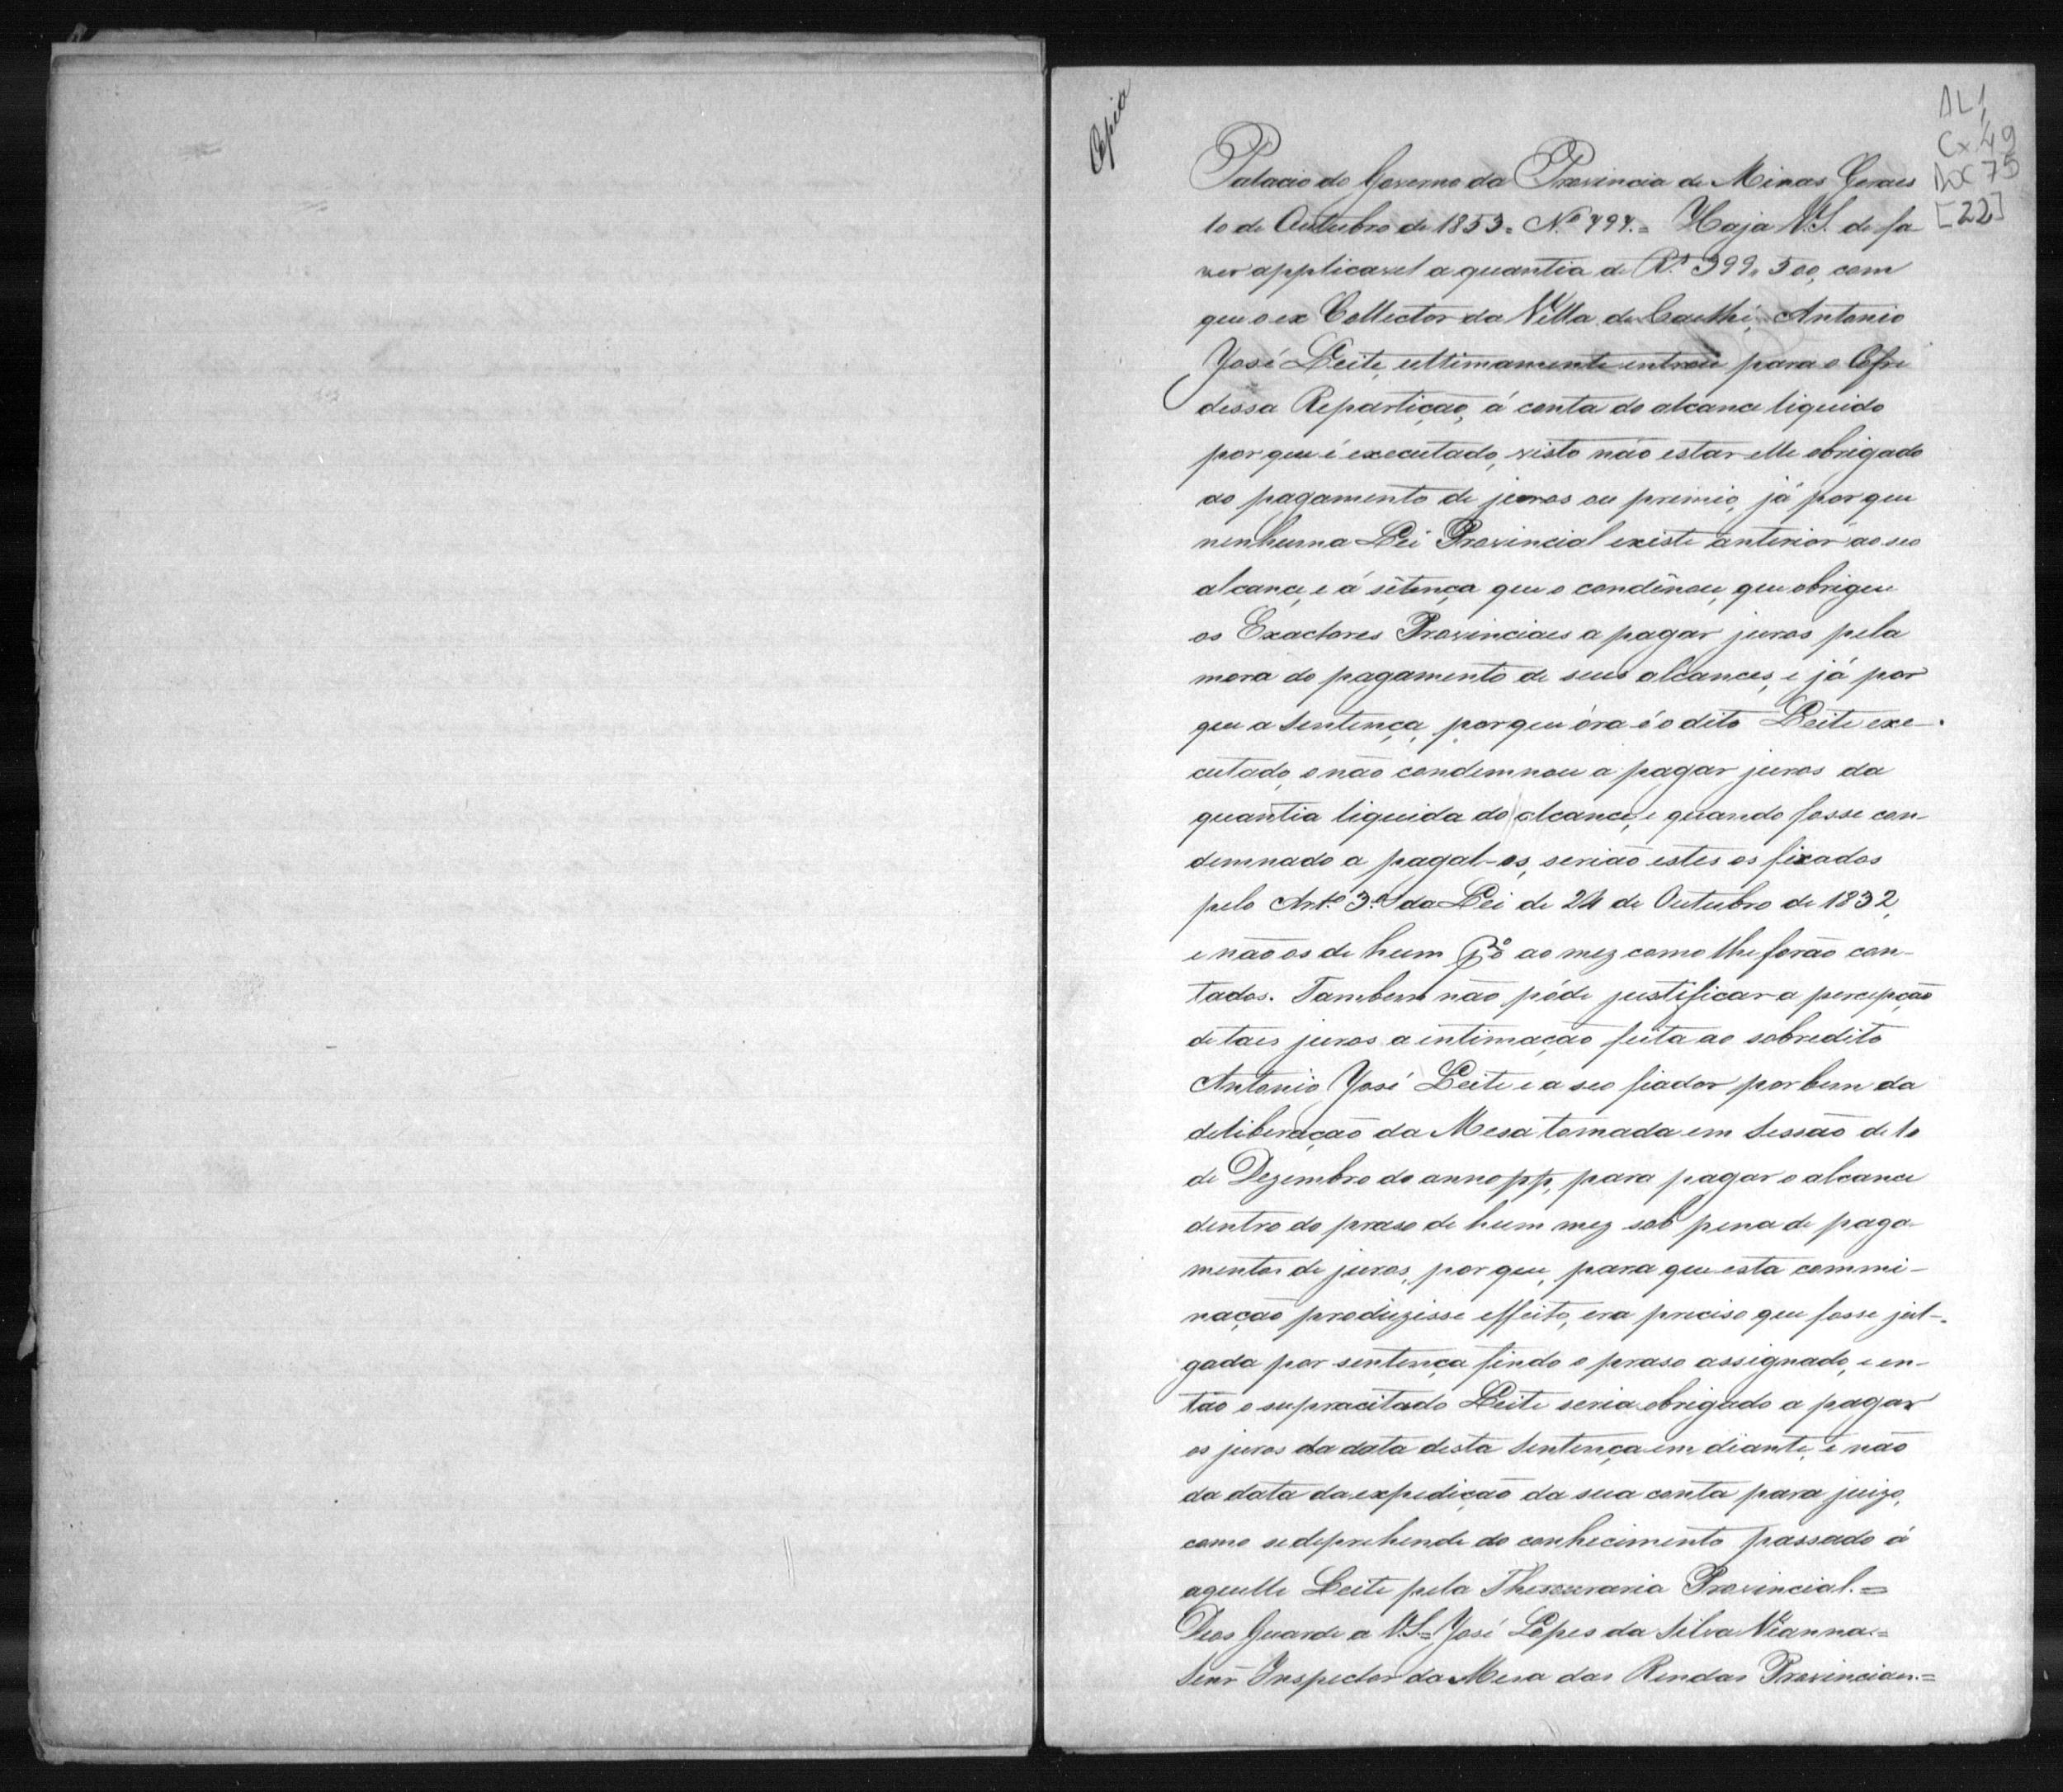 Copia
AL1
Cx 49
Doc 75
[22]
Palacio do Governo da Provincia de Minas Geraes
10 de Outubro de 1853. = Nº 494. = Haja V.S. de fa
zer applicavel a quantia de R.s 399,,500, com
que o ex Collector da Villa de Caethé, Antonio
José Leite, ultimamente entrou para o Cofre
dessa Repartição, á conta do alcance liquido
por que é executado, visto não estar elle obrigado
ao pagamento de juros ou premio, já por que
nenhuma Lei Provincial existe anterior ao seo
alcance, e á setença que o condẽnou, que obrigue
os Exactores Provinciaes a pagar juros pela
mora do pagamento de seus alcances, e já por
que a Sentença, porque óra é o dito Leite exe-
cutado, o não condemnou a pagar juros da
quantia liquida do alcance, e quando fosse con-
demnado a pagal-os, serião estes os fixados
pelo Art.º 3.º da Lei de 24 de Outubro de 1832,
e não os de hum p%º ao mez como lhe forão con-
tados. Tambem não póde justificar a percepção
de taes juros a intimação feita ao sobredito
Antonio José Leite e a seo fiador por bem da
deliberação da Mesa tomada em Sessão de 10
de Dezembro do anno pp, para pagar o alcance
dentro do praso de hum mez sob pena de paga-
mentos de juros, por que, para que esta commi-
nação produzisse effeito, era preciso que fosse jul-
gada por sentença findo o praso assignado, e en-
tão o supracitado Leite seria obrigado a pagar
os juros da data desta Sentença em diante, e não
da data da expedição da sua conta para juizo,
como se deprehende do conhecimento passado á
aquelle Leite pela Thesouraria Provincial. =
Deos Guarde a V.S. = José Lopes da Silva Vianna. =
Senr Inspector da Mesa das Rendas Provinciaes. =